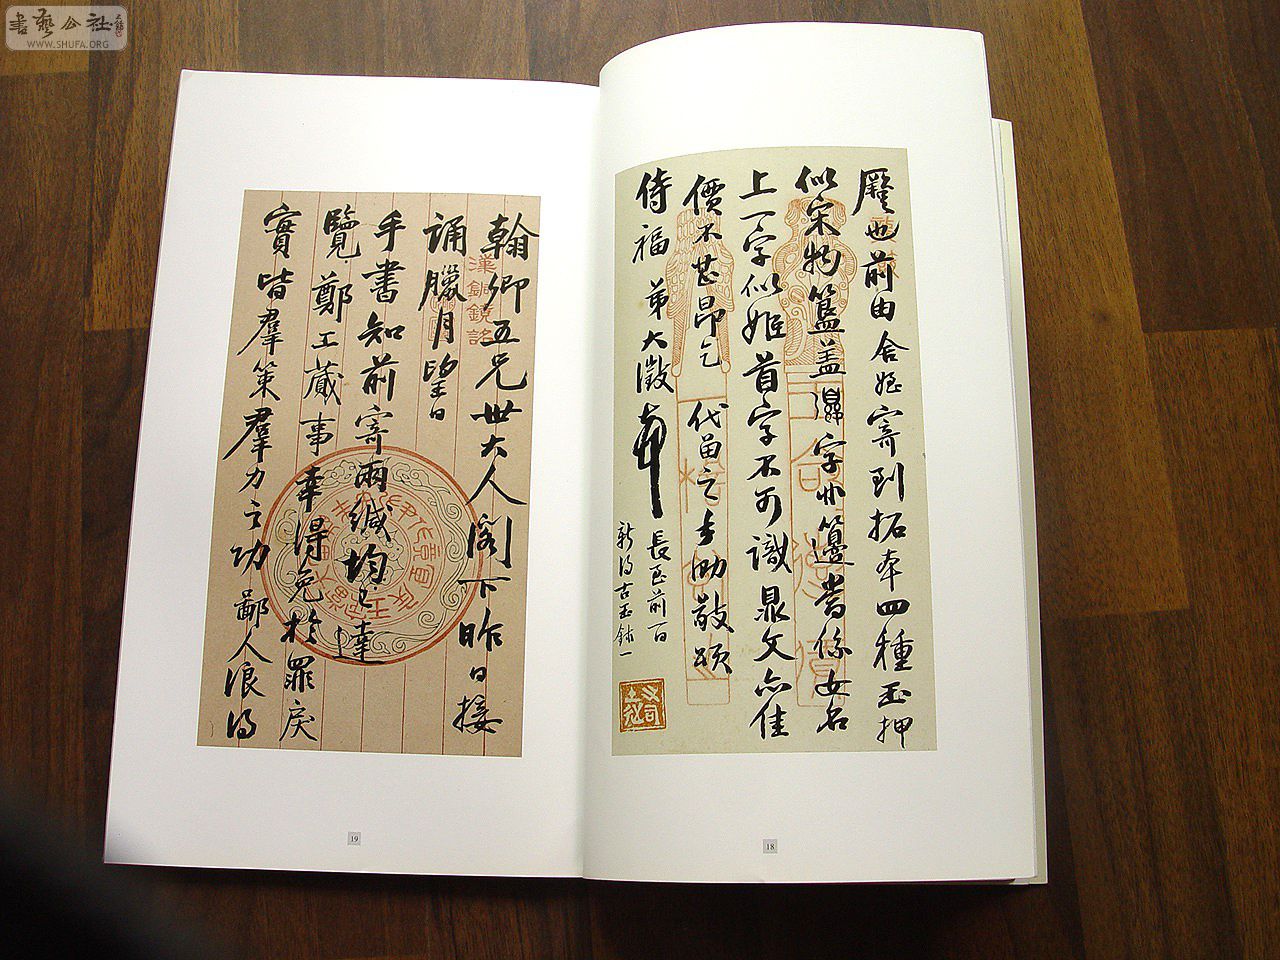 書藝公社
WWW.SHUFA.ORG
也前由舍姪寄到拓本四種玉押
似宋物簠蓋字作邊當係女名
上一字似姬首字不可識鼎文亦佳
價不甚昂乞 代留之手泐敬頌
侍福 弟大澂頓 
新得古玉鉥一
18
翰卿五兄世大人閣下昨日接
誦臘月望日
手書知前寄兩緘均已達
覽鄭工蕆事幸得免於罪戾
實皆羣策羣力之功鄙人浪得
漢銅鏡銘
19